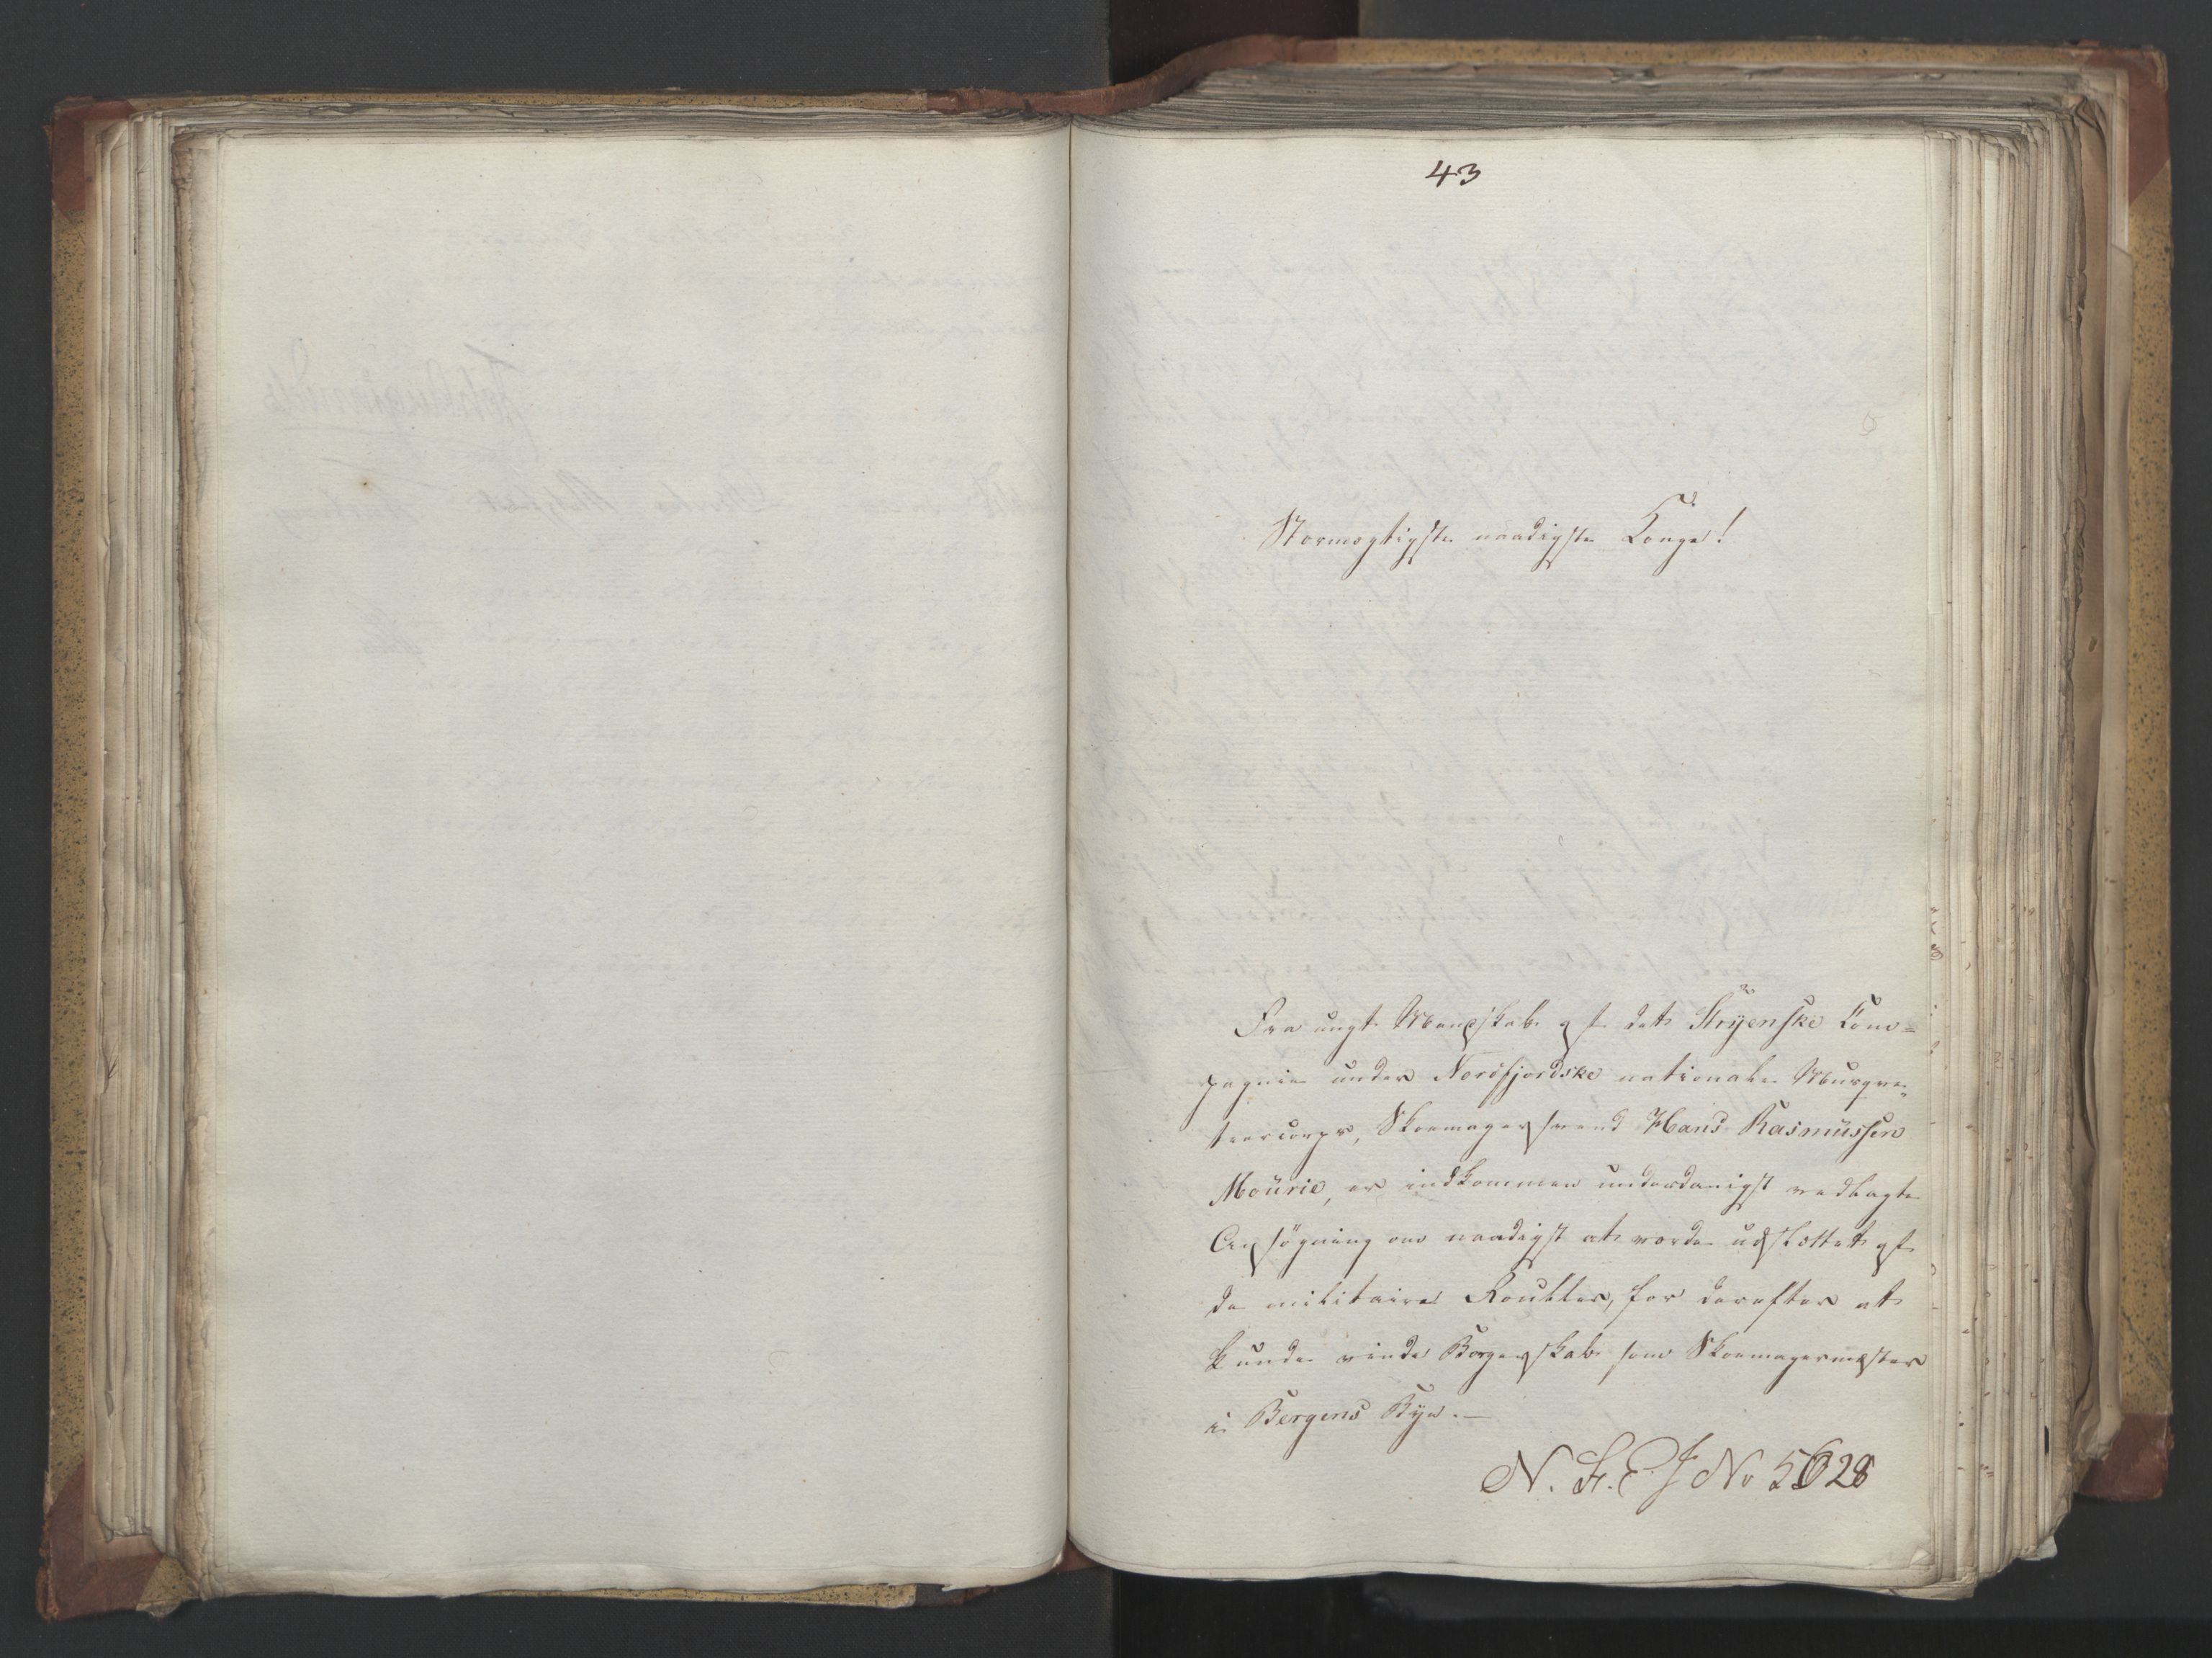 43
Stormægtigste naadigste Konge!
Fra ungt Mandskab af det Stryenske Com-
pagnie under Nordfjordske nationale Musque-
teercorps, Skoemagersvend Hans Rasmüssen
Moürie, er indkommen underdanigst vedlagte
Ansøgning om naadigst at vorde udslettet af
de militaire Rouller, for derefter at
kunde vinde Borgerskab som Skoemagermester
i Bergens Bye.—
N. H. C. J No 5628